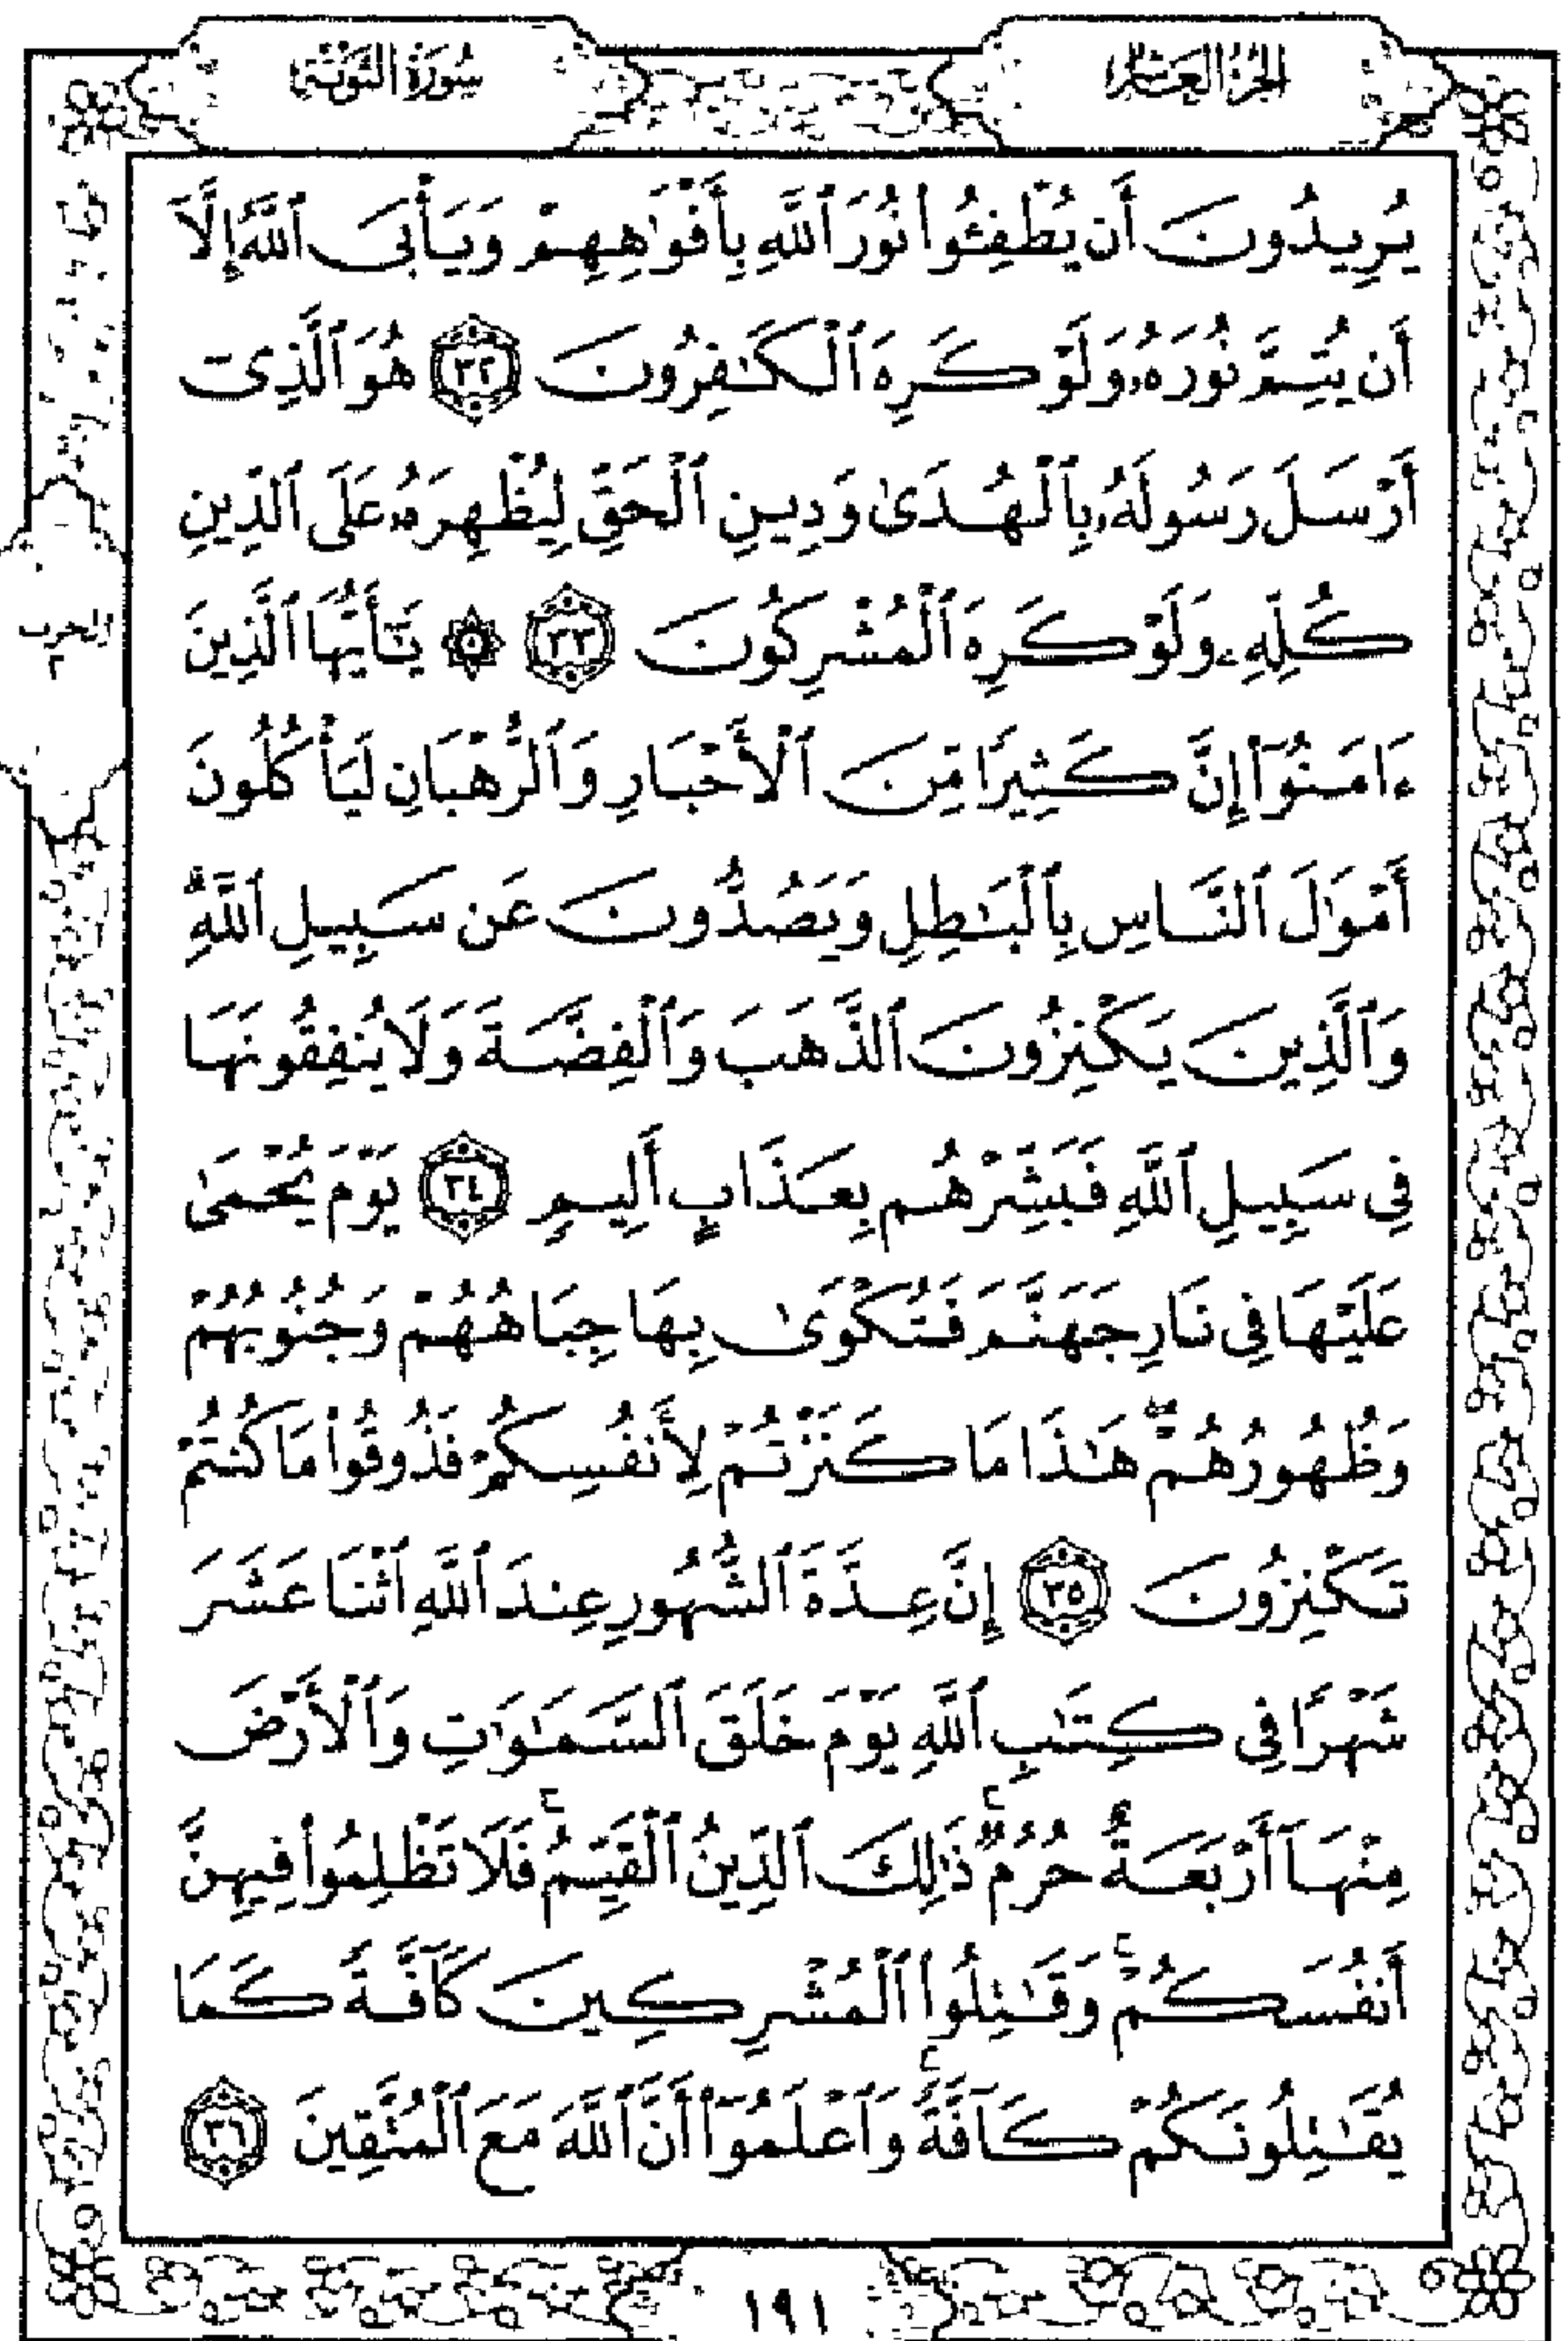 الجزء العاشر
سورة التوبة
يُرِيدُونَ أَن يُطْفِـُٔوا۟ نُورَ ٱللَّهِ بِأَفْوَٰهِهِمْ وَيَأْبَى ٱللَّهُ إِلَّآ
أَن يُتِمَّ نُورَهُۥ وَلَوْ كَرِهَ ٱلْكَٰفِرُونَ ٣٢ هُوَ ٱلَّذِىٓ
أَرْسَلَ رَسُولَهُۥ بِٱلْهُدَىٰ وَدِينِ ٱلْحَقِّ لِيُظْهِرَهُۥ عَلَى ٱلدِّينِ
كُلِّهِۦ وَلَوْ كَرِهَ ٱلْمُشْرِكُونَ ٣٣ ۞ يَٰٓأَيُّهَا ٱلَّذِينَ
ءَامَنُوٓا۟ إِنَّ كَثِيرًا مِّنَ ٱلْأَحْبَارِ وَٱلرُّهْبَانِ لَيَأْكُلُونَ
أَمْوَٰلَ ٱلنَّاسِ بِٱلْبَٰطِلِ وَيَصُدُّونَ عَن سَبِيلِ ٱللَّهِ ۗ
وَٱلَّذِينَ يَكْنِزُونَ ٱلذَّهَبَ وَٱلْفِضَّةَ وَلَا يُنفِقُونَهَا
فِى سَبِيلِ ٱللَّهِ فَبَشِّرْهُم بِعَذَابٍ أَلِيمٍ ٣٤ يَوْمَ يُحْمَىٰ
عَلَيْهَا فِى نَارِ جَهَنَّمَ فَتُكْوَىٰ بِهَا جِبَاهُهُمْ وَجُنُوبُهُمْ
وَظُهُورُهُمْ ۖ هَٰذَا مَا كَنَزْتُمْ لِأَنفُسِكُمْ فَذُوقُوا۟ مَا كُنتُمْ
تَكْنِزُونَ ٣٥ إِنَّ عِدَّةَ ٱلشُّهُورِ عِندَ ٱللَّهِ ٱثْنَا عَشَرَ
شَهْرًا فِى كِتَٰبِ ٱللَّهِ يَوْمَ خَلَقَ ٱلسَّمَٰوَٰتِ وَٱلْأَرْضَ
مِنْهَآ أَرْبَعَةٌ حُرُمٌ ۚ ذَٰلِكَ ٱلدِّينُ ٱلْقَيِّمُ ۚ فَلَا تَظْلِمُوا۟ فِيهِنَّ
أَنفُسَكُمْ ۚ وَقَٰتِلُوا۟ ٱلْمُشْرِكِينَ كَآفَّةً كَمَا
يُقَٰتِلُونَكُمْ كَآفَّةً ۚ وَٱعْلَمُوٓا۟ أَنَّ ٱللَّهَ مَعَ ٱلْمُتَّقِينَ ٣٦
١٩١